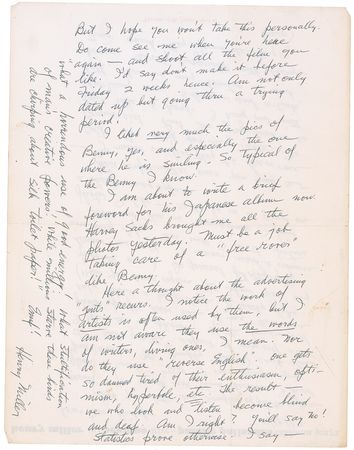 But I hope you won't take this personally.
Do come see me when you're here
again — and shoot all the film you
like. I'd say don't make it before
Friday 2 weeks hence. Am not only
dated up but going thru a trying
period.
I liked very much the pics of
Benny, yes, and especially the one
where he is smiling. So typical of
the Benny I know.
I am about to write a brief
foreword for his Japanese album now.
Harvey Sacks brought me all the
photos yesterday. Must be a job
taking care of a "free rover"
like Benny.
Here a thought about the advertising
"guts" recurs. I notice the work of
artists is often used by them, but I
am not aware they use the words
of writers, living ones, I mean. Nor
do they use "reverse English". One gets
so damned tired of their enthusiasm, opti-
mism, hyperbole, etc. The result —
we who look and listen become blind
and deaf. Am I right? You'll say No!
Statistics prove otherwise. I say —
What a horrendous use of good energy! What
of man's creative powers! While millions starve these birds
are chirping about silk toilet paper!
Henry Miller